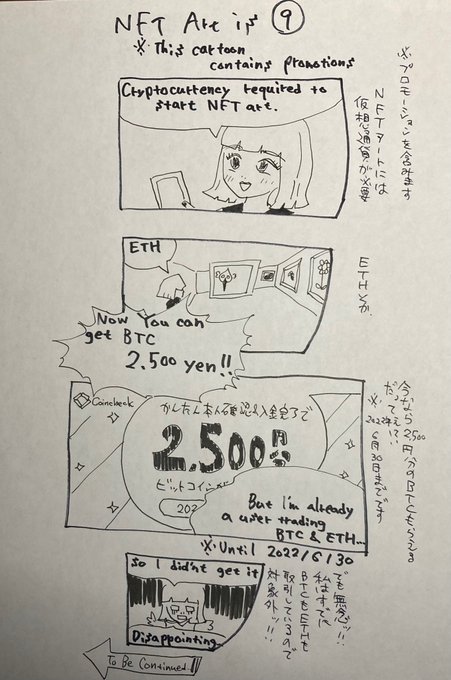 NFT Art is ⑨
※ This cartoon
contains promotions
※プロモーションを含みます
Cryptocurrency required to
start NFT art.
NFTアートには
仮想通貨が必要
ETH
ETHとか
Now You can
get BTC
2.500 yen!!
Coincheck
かんたん本人確認&入金完了で
2,500円分
ビットコインが
202
But I'm already
a user trading
BTC & ETH...
今なら2,500
円分のBTCもらえる
だってえ!!
※2022年
6月30日までです
※Until 2022/6/30
so I didn't get it
Disappointing...
でも無念ッ!!
私はすでに
BTCもETHも
取引しているので
対象外ッ!!
To Be Continued